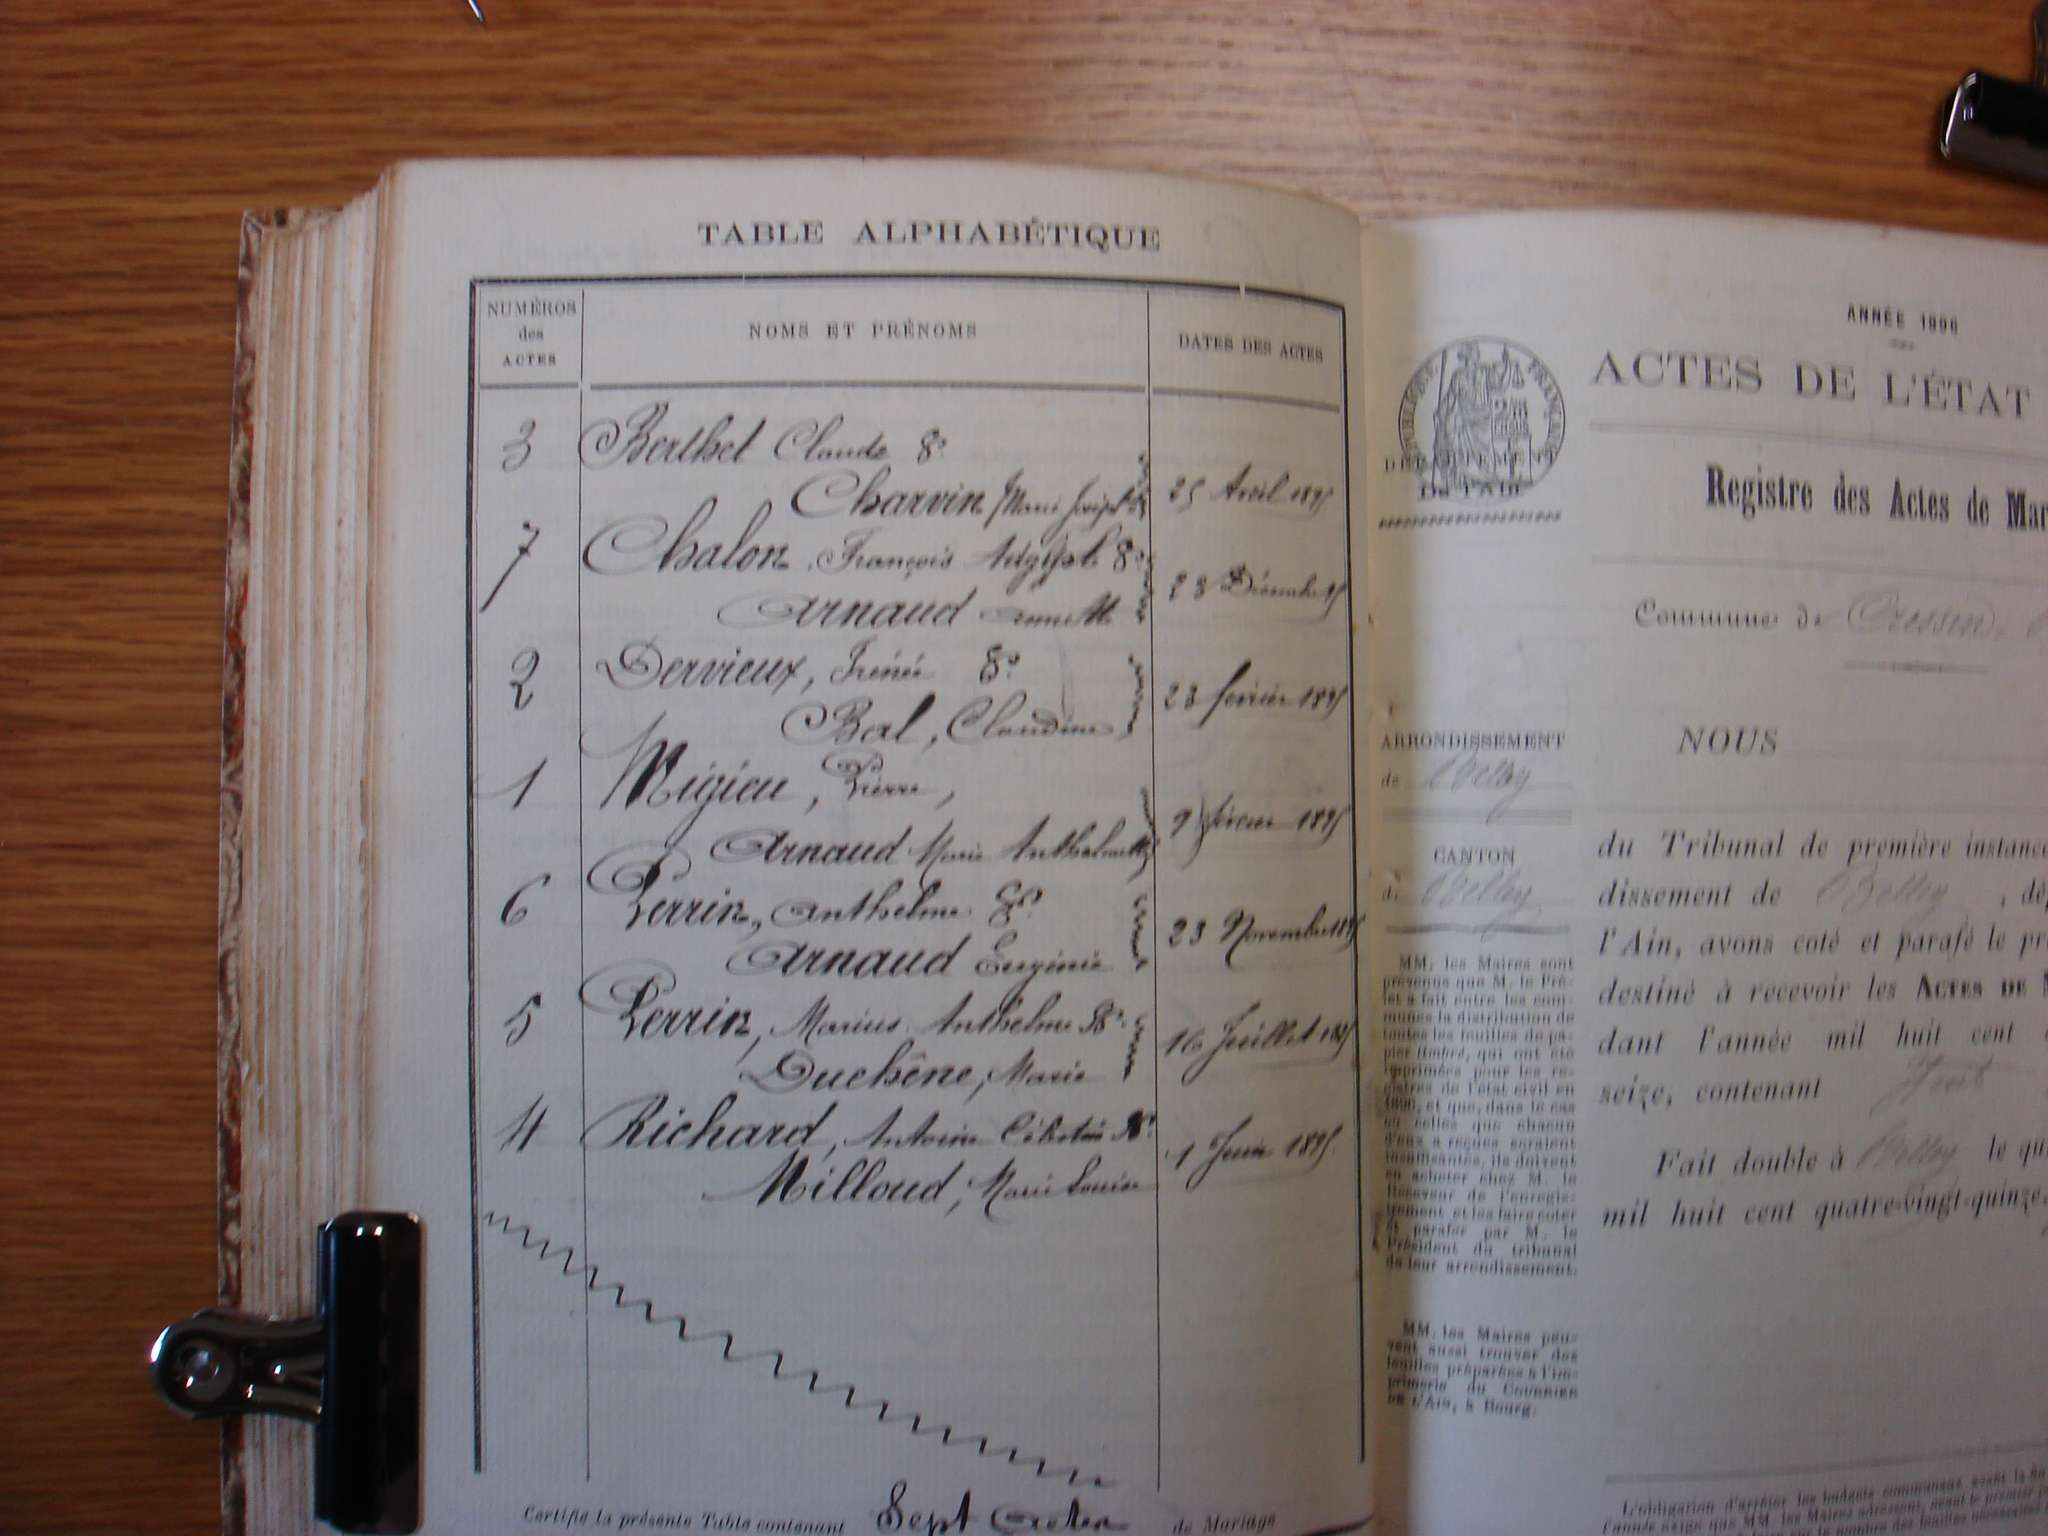 TABLE ALPHABÉTIQUE
NUMÉROS
des
ACTES
NOMS ET PRÉNOMS
DATES DES ACTES
3 Berthet Claude &
Charvin Marie 25 Avril 1895
7 Chalon François &
Arnaud 28 Décembre 95
2 Dervieux, Irénée &
Bal, Claudine 23 février 1895
1 Migieu, Pierre,
Arnaud Marie Anthelmette 9 février 1895
6 Perrin, Anthelme &
Arnaud Eugénie 23 Novembre 1895
5 Perrin, Marius Anthelme &
Duchêne, Marie 16 Juillet 1895
4 Richard, Antoine &
Milloud, Marie Louise 1 Juin 1895
Certifie la présente Table contenant Sept Actes de Mariage
ANNÉE 1896
ACTES DE L'ÉTAT
RÉPUBLIQUE FRANÇAISE
DÉPARTEMENT
De l'AIN
Registre des Actes de Mar
Commune de Cressin
ARRONDISSEMENT
de Belley
CANTON
de Belley
NOUS
du Tribunal de première instance
dissement de Belley, dép
l'Ain, avons coté et parafé le pr
destiné à recevoir les ACTES DE M
dant l'année mil huit cent
seize, contenant
Fait double à Belley le qu
mil huit cent quatre-vingt-quinze
MM. les Maires sont
prévenus que M. le Pré-
fet a fait entre les com-
munes la distribution de
toutes les feuilles de pa-
pier timbré, qui ont été
imprimées pour les re-
gistres de l'état civil en
1896, et que, dans le cas
où celles que chacun
d'eux a reçues seraient
insuffisantes, ils doivent
en acheter chez M. le
Receveur de l'enregis-
trement et les faire coter
et parafer par M. le
Président du tribunal
de leur arrondissement.
MM. les Maires peu-
vent aussi trouver des
feuilles préparées à l'im-
primerie du COURRIER
DE L'AIN, à Bourg.
L'obligation d'arrêter les budgets communaux avant la fin